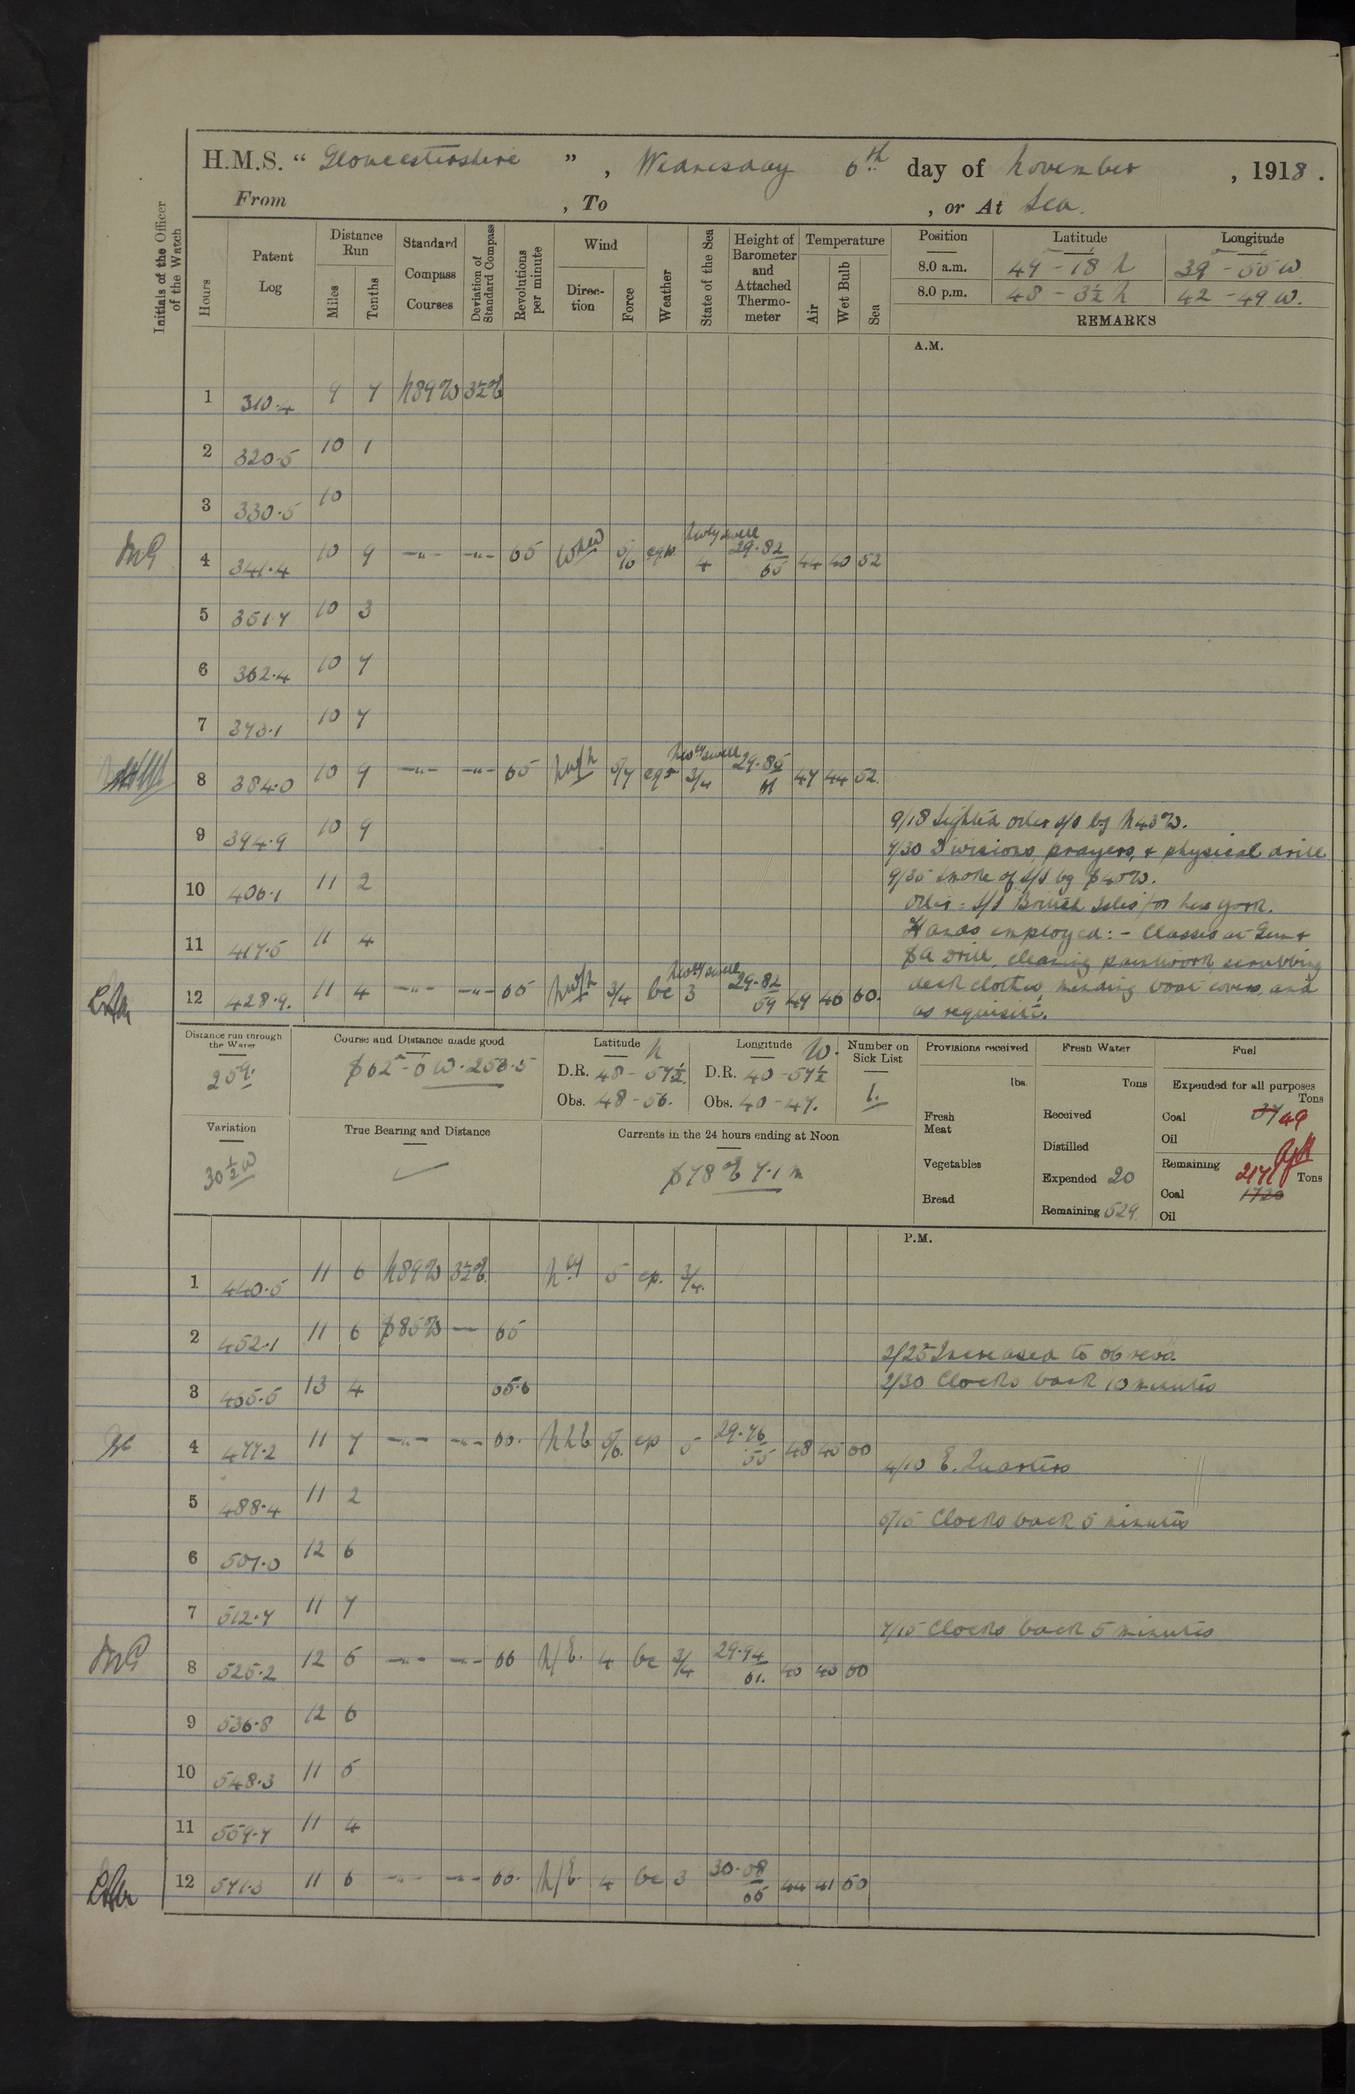 H.M.S. “ Gloucestershire ”, Wednesday 6th day of November, 1918.
From , To , or At Sea.
Initials of the Officer of the Watch
Hours
Patent Log
Distance Run
Miles
Tenths
Standard Compass Courses
Deviation of Standard Compass
Revolutions per minute
Wind
Direction
Force
Weather
State of the Sea
Height of Barometer and Attached Thermometer
Temperature
Air
Wet Bulb
Sea
Position Latitude Longitude
8.0 a.m. 49 - 18 N 39 - 55 W
8.0 p.m. 48 - 3½ N 42 - 49 W.
REMARKS
A.M.
1 310.4 9 7 N89W 3½E
2 320.5 10 1
3 330.5 10
4 341.4 10 9 -"- -"- 65 WNW 29.82 65 44 40 52
5 351.7 10 3
6 362.4 10 7
7 373.1 10 7
8 384.0 10 9 -"- -"- 65 5/7 NW'ly swell 3/4 29.85 47 44 52
9 394.9 10 9
9/18 Sighted Oiler s/s bg N43W.
9/30 Divisions, prayers, & physical drill
10 406.1 11 2
9/35 Smoke of s/s bg S40W.
Oiler = s/s British Isles for New York.
11 417.5 11 4
Hands employed:- Classes at Gun &
SA Drill, cleaning paintwork, scrubbing
12 428.9. 11 4 -"- -"- 65 3/4 bc NW'ly swell 3 29.82 59 49 46 60.
deck cloths, mending boat covers, and
as requisite.
Distance run through the Water
259.
Course and Distance made good
S62°-6 W. 258.5
Latitude N
D.R. 48 - 57½
Obs. 48 - 56.
Longitude W.
D.R. 40 - 57½
Obs. 40 - 47.
Number on Sick List
1.
Variation
30½W
True Bearing and Distance
Currents in the 24 hours ending at Noon
S78E 7.1 m
Provisions received
lbs.
Fresh Meat
Vegetables
Bread
Fresh Water
Tons
Received
Distilled
Expended 20
Remaining 529
Fuel
Expended for all purposes
Tons
Coal 37 49
Oil
Remaining 2171 Tons
Coal 1720
Oil
P.M.
1 440.5 11 6 N89W 3½E. N'ly 5 cp. 3/4.
2 452.1 11 6 S85W — 65
2/25 Increased to 66 revs.
2/30 Clocks back 10 minutes
3 465.5 13 4 65.6
4 477.2 11 7 -"- -"- 66. NNE 5/6. cp 5 29.76 55 48 45 60
4/10 E. Quarters
5 488.4 11 2
5/15 Clocks back 5 minutes
6 501.0 12 6
7 512.7 11 7
7/15 Clocks back 5 minutes
8 525.2 12 5 -"- -"- 66 N/E. 4 bc 3/4 29.94 61. 40 40 60
9 536.8 12 6
10 548.3 11 5
11 559.7 11 4
12 571.3 11 6 -"- -"- 66. N/E. 4 bc 3 30.08 65 44 41 50